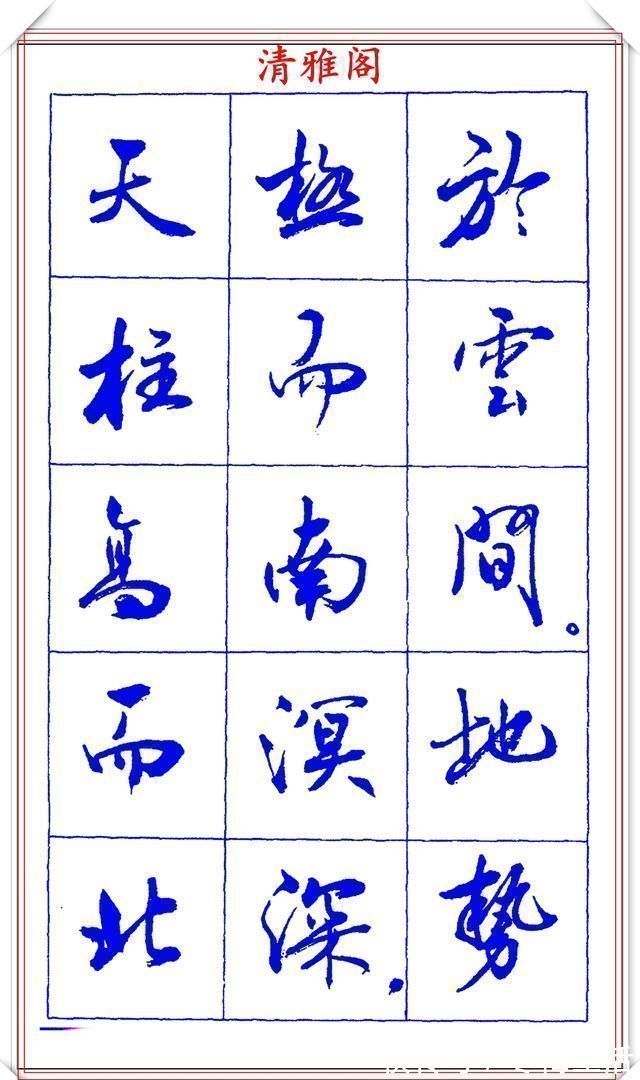 清雅阁
於雲間。地勢
極而南溟深。
天柱高而北